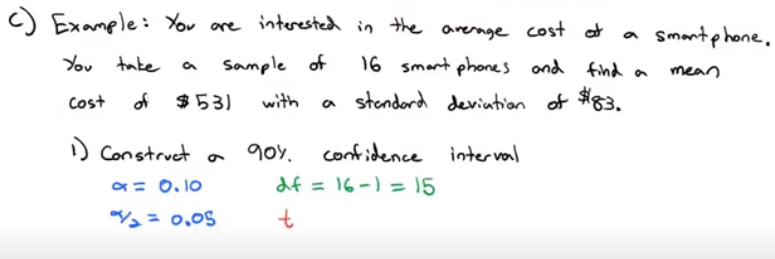 c) Example: You are interested in the average cost of a smartphone.
You take a sample of 16 smart phones and find a mean
cost of $531 with a standard deviation of $83.
1) Construct a 90% confidence interval
α = 0.10 df = 16-1 = 15
α/2 = 0.05 t